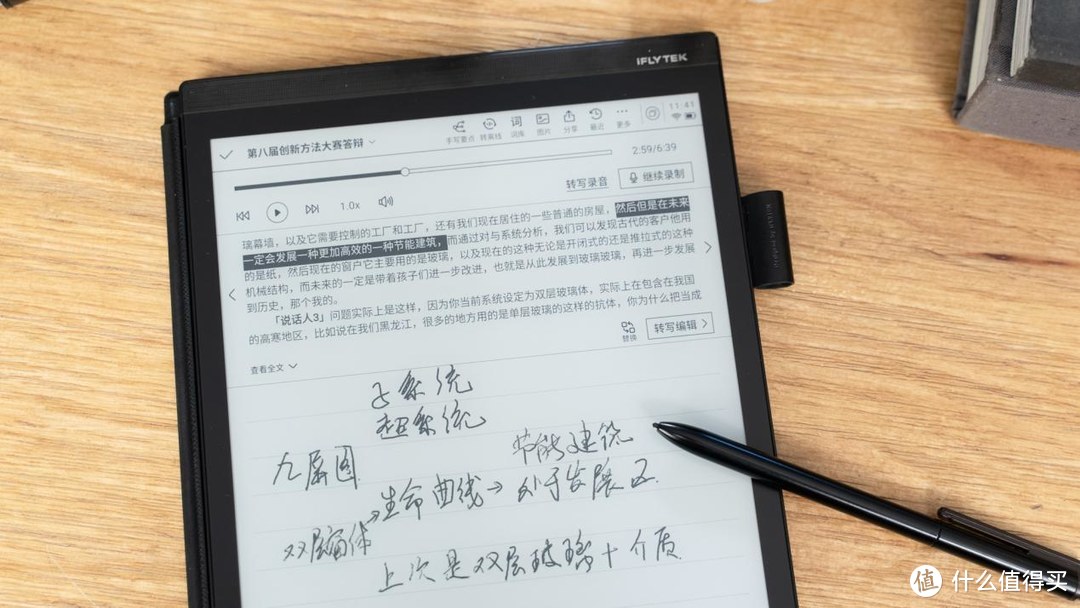 iFLYTEK
11:41
第八届创新方法大赛答辩
手写重点 转离线 词库 图片 分享 最近 更多
词
2:59/6:39
1.0x
转写录音 继续录制
璃幕墙，以及它需要控制的工厂和工厂，还有我们现在居住的一些普通的房屋，然后但是在未来
一定会发展一种更加高效的一种节能建筑，而通过对与系统分析，我们可以发现古代的客户他用
的是纸，然后现在的窗户它主要用的是玻璃，以及现在的这种无论是开闭式的还是推拉式的这种
机械结构，而未来的一定是带着孩子们进一步改进，也就是从此发展到玻璃玻璃，再进一步发展
到历史，那个我的。
「说话人3」问题实际上是这样，因为你当前系统设定为双层玻璃体，实际上在包含在我国
的高寒地区，比如说在我们黑龙江，很多的地方用的是单层玻璃的这样的抗体，你为什么把当成
替换 转写编辑
查看全文
子系统
超系统
九屏图
节能建筑
生命曲线→处于发展区
双层窗体
上次是双层玻璃十介质
值 什么值得买